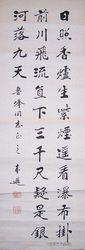 日照香爐生紫煙遙看瀑布掛
前川飛流直下三千尺疑是銀
河落九天